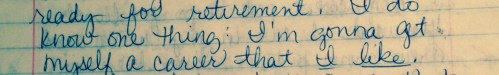 ready for retirement. I do
know one thing: I'm gonna get
myself a career that I like.